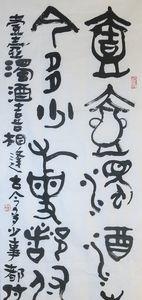 壹壺濁酒
今多少事都付
壹壺濁酒喜相逢古今多少事都付